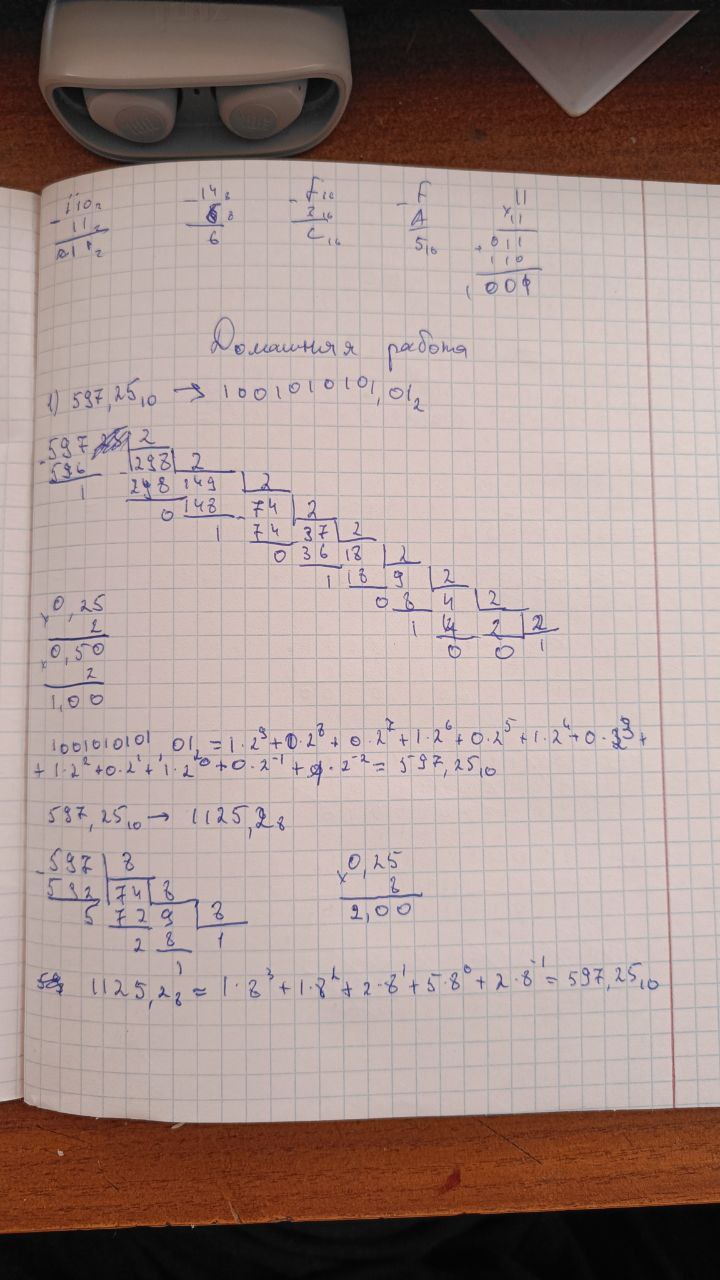 110₂ 14₈ F₁₆ F 11
- 11₂ - 6₈ - 3₁₆ - A × 11
011₂ 6 C₁₆ 5₁₆ + 011
110
1001
Домашняя работа
1) 597,25₁₀ → 1001010101,01₂
- 597 | 2
596 | 298 | 2
1 298 149 | 2
0 148 74 | 2
1 74 37 | 2
0 36 18 | 2
1 18 9 | 2
0 8 4 | 2
1 4 2 | 2
0 0 1
× 0,25
2
× 0,50
2
1,00
1001010101,01₂ = 1·2⁹+0·2⁸+0·2⁷+1·2⁶+0·2⁵+1·2⁴+0·2³+
+1·2²+0·2¹+1·2⁰+0·2⁻¹+1·2⁻²=597,25₁₀
597,25₁₀ → 1125,2₈
- 597 | 8
592 | 74 | 8
5 72 9 | 8
2 8 1
1
× 0,25
8
2,00
1125,2₈ = 1·8³+1·8²+2·8¹+5·8⁰+2·8⁻¹=597,25₁₀